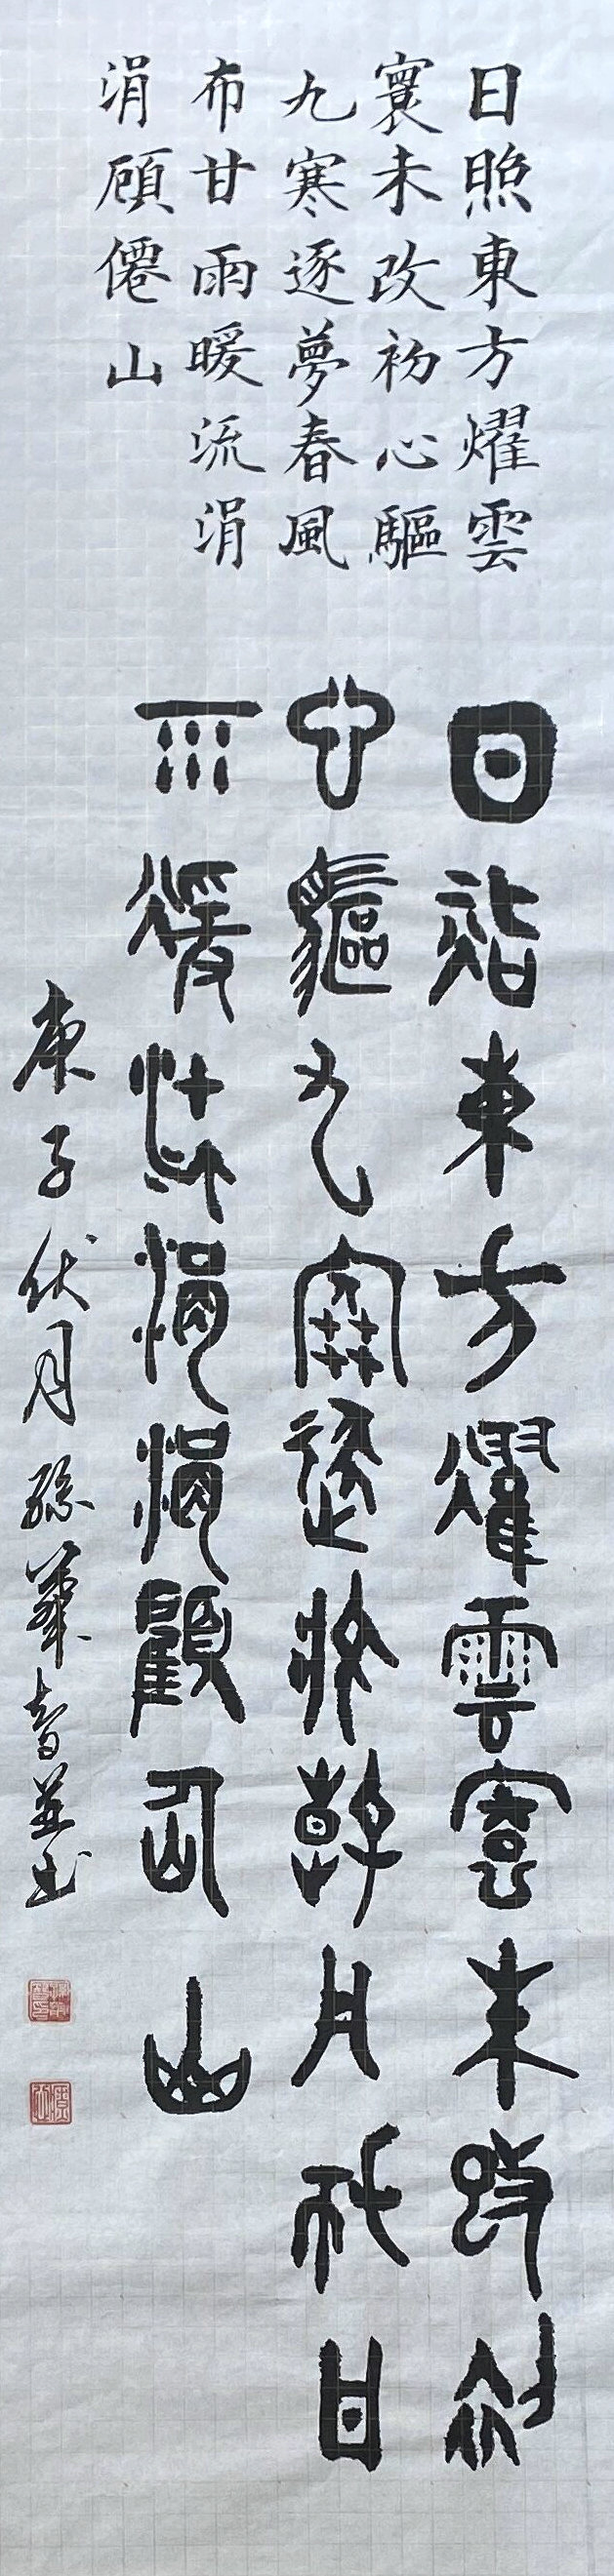 日照東方燿雲
寰未改初心驅
九寒逐夢春風
布甘雨暖流涓
涓顧僊山
日照東方燿雲寰未改初
心驅九寒逐夢春風布甘
雨暖流涓涓顧僊山
庚子伏月孫華並书